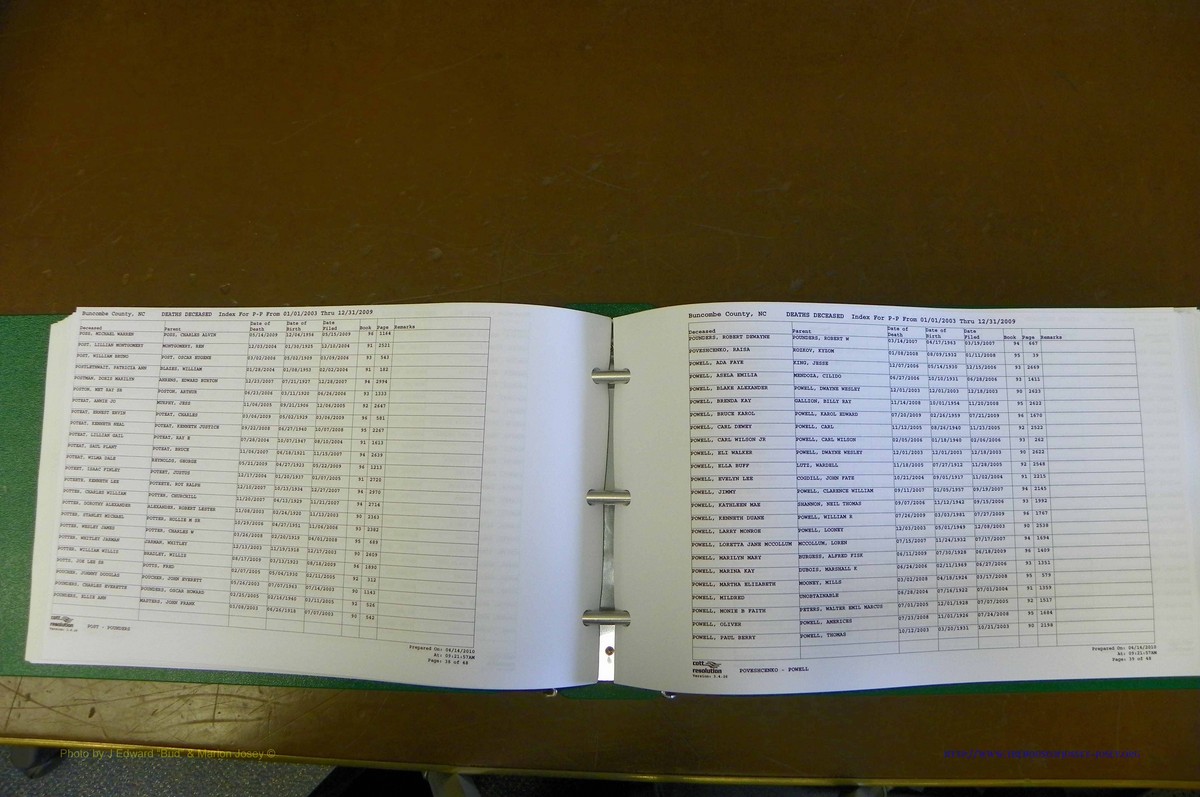 Buncombe County, NC DEATHS DECEASED Index For P-P From 01/01/2003 Thru 12/31/2009
Deceased Parent Date of Death Date of Birth Date Filed Book Page Remarks
POSS, MICHAEL WARREN POSS, CHARLES ALVIN 05/14/2009 12/06/1956 05/15/2009 96 1184
POST, LILLIAN MONTGOMERY MONTGOMERY, BEN 12/03/2004 01/30/1925 12/10/2004 91 2521
POST, WILLIAM BRUNO POST, OSCAR EUGENE 03/02/2006 05/02/1909 03/09/2006 93 543
POSTLETHWAIT, PATRICIA ANN BLAZES, WILLIAM 01/28/2004 01/08/1953 02/02/2004 91 182
POSTMAN, DORIS MARILYN AHRENS, EDWARD BURTON 12/21/2007 07/21/1927 12/28/2007 94 2994
POSTON, WET RAY SR POSTON, ARTHUR 06/23/2006 03/11/1920 06/26/2006 93 1333
POTEAT, ANNIE JO MURPHY, JESS 11/06/2005 12/06/2005 92 2647
POTEAT, ERNEST ERVIN POTEAT, CHARLES 03/06/2009 05/02/1926 03/06/2009 96 581
POTEAT, KENNETH NEAL POTEAT, KENNETH JUSTICE 08/22/2008 06/27/1940 10/07/2008 95 2267
POTEAT, LILLIAN GAIL POTEAT, RAY E 07/28/2004 10/07/1947 08/10/2004 91 1613
POTEAT, PAUL PLANT POTEAT, BRUCE 11/06/2007 06/18/1921 11/15/2007 94 2639
POTEAT, WILMA DALE REYNOLDS, GEORGE 05/21/2009 04/27/1923 05/22/2009 96 1213
POTEET, ISAAC FINLEY POTEET, JUSTUS 12/17/2004 01/20/1937 01/07/2005 91 2720
POTEETE, KENNETH LEE POTEETE, ROY RALPH 12/10/2007 10/13/1934 12/27/2007 94 2970
POTTER, CHARLES WILLIAM POTTER, CHURCHILL 11/20/2007 04/13/1929 11/21/2007 94 2714
POTTER, DOROTHY ALEXANDER ALEXANDER, ROBERT LESTER 11/08/2003 02/26/1920 11/13/2003 90 2343
POTTER, STANLEY MICHAEL POTTER, HOLLIE M SR 10/28/2006 04/27/1951 11/06/2006 93 2382
POTTER, WESLEY JAMES POTTER, CHARLES W 03/26/2008 02/20/1918 04/01/2008 95 689
POTTER, WHITLEY JARMAN JARMAN, WHITLEY 12/13/2003 11/19/1918 12/17/2003 90 2609
POTTER, WILLIAM WILLIS BRADLEY, WILLIS 08/17/2009 03/10/1921 08/18/2009 96 1890
POTTS, JOE LEE SR POTTS, FRED 02/07/2005 05/04/1930 02/11/2005 92 312
POUCHER, JOHNNY DOUGLAS POUCHER, JOHN EVERETT 05/26/2003 07/07/1963 07/14/2003 90 1143
POUNDERS, CHARLES EVERETTE POUNDERS, OSCAR HOWARD 02/25/2005 02/18/1940 03/11/2005 92 526
POUNDERS, ELLIS ANN MASTERS, JOHN FRANK 01/09/2003 06/26/1918 07/07/2003 90 542
cott
resolution
POST - POUNDERS
Prepared On: 04/14/2010
At: 09:21:57AM
Page: 38 of 48
Buncombe County, NC DEATHS DECEASED Index For P-P From 01/01/2003 Thru 12/31/2009
Deceased Parent Date of Death Date of Birth Date Filed Book Page Remarks
POUNDERS, ROBERT DEWAYNE POUNDERS, ROBERT W 03/14/2007 04/17/1963 03/19/2007 94 687
POVESHCHENKO, RAISA KOZKOV, KYZOM 01/08/2008 08/09/1932 01/11/2008 95 39
POWELL, ADA FAYE KING, JESSE 12/07/2006 05/14/1930 12/13/2006 93 2669
POWELL, ASELA EMILIA MENDOZA, CILIDO 06/27/2006 10/10/1921 06/28/2006 93 1411
POWELL, BLAKE ALEXANDER POWELL, DWAYNE WESLEY 12/01/2003 12/01/2003 12/18/2003 90 2623
POWELL, BRENDA KAY GALLION, BILLY RAY 11/14/2008 10/01/1954 11/20/2008 95 2622
POWELL, BRUCE KAROL POWELL, KAROL EDWARD 07/10/2009 02/26/1959 07/21/2009 96 1670
POWELL, CARL DEWEY POWELL, CARL 11/12/2005 08/26/1940 11/23/2005 92 2522
POWELL, CARL WILSON JR POWELL, CARL WILSON 02/05/2006 01/18/1940 02/06/2006 93 262
POWELL, ELI WALKER POWELL, DWAYNE WESLEY 12/01/2003 12/01/2003 12/18/2003 90 2622
POWELL, ELLA RUFF LUTZ, WARDELL 11/18/2005 07/27/1912 11/28/2005 92 2548
POWELL, EVELYN LEE COGDILL, JOHN FATE 10/21/2004 09/01/1917 11/02/2004 91 2215
POWELL, JIMMY POWELL, CLARENCE WILLIAM 09/11/2007 01/05/1957 09/19/2007 94 2165
POWELL, KATHLEEN MAX SHANNON, NEIL THOMAS 09/07/2006 11/12/1942 09/15/2006 93 1992
POWELL, KENNETH DUANE POWELL, WILLIAM R 07/26/2009 03/03/1981 07/27/2009 96 1767
POWELL, LARRY MONROE POWELL, LOONEY 12/03/2003 05/01/1949 12/08/2003 90 2538
POWELL, LORETTA JANE MCCOLLUM MCCOLLUM, LOREN 07/15/2007 11/24/1932 07/17/2007 94 1694
POWELL, MARILYN MARY BURGESS, ALFRED FISK 06/11/2009 07/30/1928 06/18/2009 96 1409
POWELL, MARINA KAY DUBOIS, MARSHALL K 06/26/2006 02/11/1969 06/27/2006 93 1351
POWELL, MARTHA ELIZABETH MOONEY, MILLS 03/02/2008 04/18/1924 03/17/2008 95 579
POWELL, MILDRED UNOBTAINABLE 06/28/2004 07/16/1922 07/01/2004 91 1359
POWELL, MONIE B FAITH PETERS, WALTER EMIL MARCUS 07/01/2005 12/01/1928 07/07/2005 92 1517
POWELL, OLIVER POWELL, AMERICUS 07/21/2008 11/01/1926 07/24/2008 95 1684
POWELL, PAUL BERRY POWELL, THOMAS 10/12/2003 03/20/1921 10/21/2003 90 2198
cott
resolution
POVESHCHENKO - POWELL
Prepared On: 04/14/2010
At: 09:21:57AM
Page: 39 of 48
Photo by J Edward "Bud" & Marion Josey ©